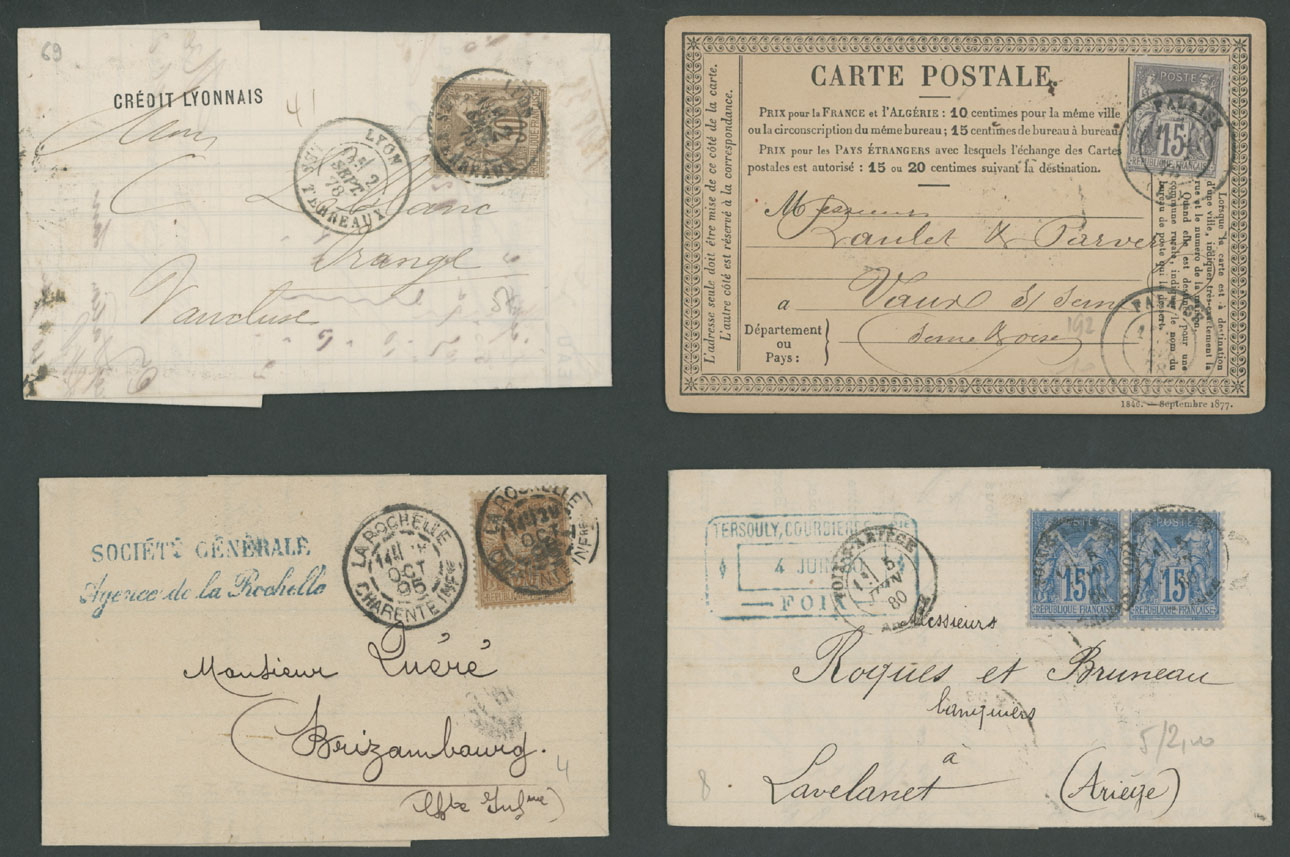 69
CRÉDIT LYONNAIS
41
LYON
2
SEPT
78
TERREAUX
Orange
Vaucluse
CARTE POSTALE
PRIX pour la FRANCE et l'ALGÉRIE : 10 centimes pour la même ville
ou la circonscription du même bureau ; 15 centimes de bureau à bureau
PRIX pour les PAYS ÉTRANGERS avec lesquels l'échange des Cartes
postales est autorisé : 15 ou 20 centimes suivant la destination.
L'adresse seule doit être mise de ce côté de la carte.
L'autre côté est réservé à la correspondance.
POSTE
15
RÉPUBLIQUE FRANÇAISE
Lorsque la carte est à destination
d'une ville, indiquer très-exactement la
rue et le numéro de la maison.
Quand elle est destinée pour une
commune rurale, indiquer le nom du
bureau de poste qui la dessert.
Messieurs
Laulet & Parvery
à Vaux S/ Seine
Département
ou
Pays :
Seine & Oise
192
1846. — Septembre 1877.
SOCIÉTÉ GÉNÉRALE
Agence de la Rochelle
LA ROCHELLE
OCT
95
CHARENTE INFRE
LA ROCHELLE
OCT
Monsieur Quéré
Brizambourg.
4
TERSOULY, COURBIÈRES
4 JUIN
FOIX
FOIX ARIÈGE
5
JUIN
80
15
RÉPUBLIQUE FRANÇAISE
15
RÉPUBLIQUE FRANÇAISE
Messieurs
Roques et Bruneau
banquiers
à
Lavelanet (Ariège)
8